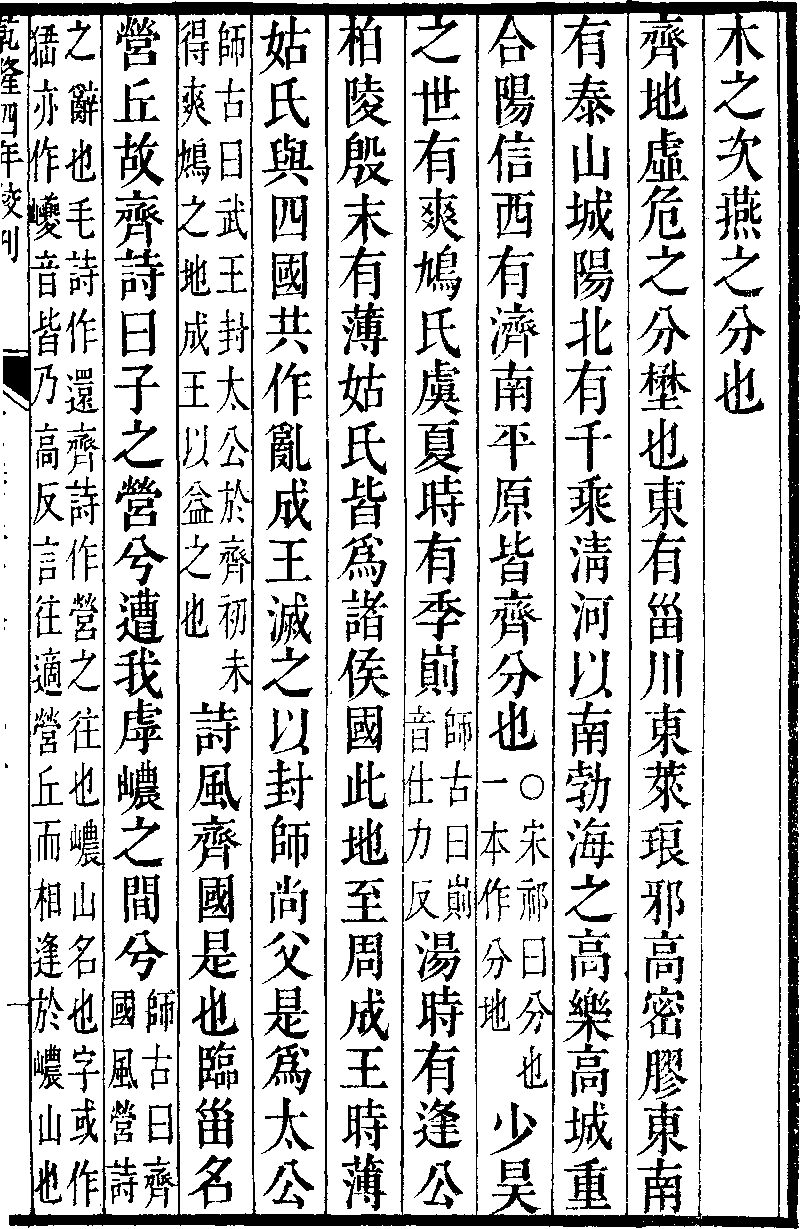 木之次燕之分也
齊地虛危之分壄也東有甾川東萊琅邪高密膠東南
有泰山城陽北有千乘淸河以南勃海之高樂高城重
合陽信西有濟南平原皆齊分也○宋祁曰分也一本作分地少昊
之世有爽鳩氏虞夏時有季崱師古曰崱音仕力反湯時有逢公
柏陵殷末有薄姑氏皆爲諸侯國此地至周成王時薄
姑氏與四國共作亂成王滅之以封師尚父是爲太公
師古曰武王封太公於齊初未得爽鳩之地成王以益之也詩風齊國是也臨甾名
營丘故齊詩曰子之營兮遭我虖嶩之間兮師古曰齊國風營詩
之辭也毛詩作還齊詩作營之往也嶩山名也字或作
亦作巎音皆乃高反言往適營丘而相逢於嶩山也
乾隆四年校刊